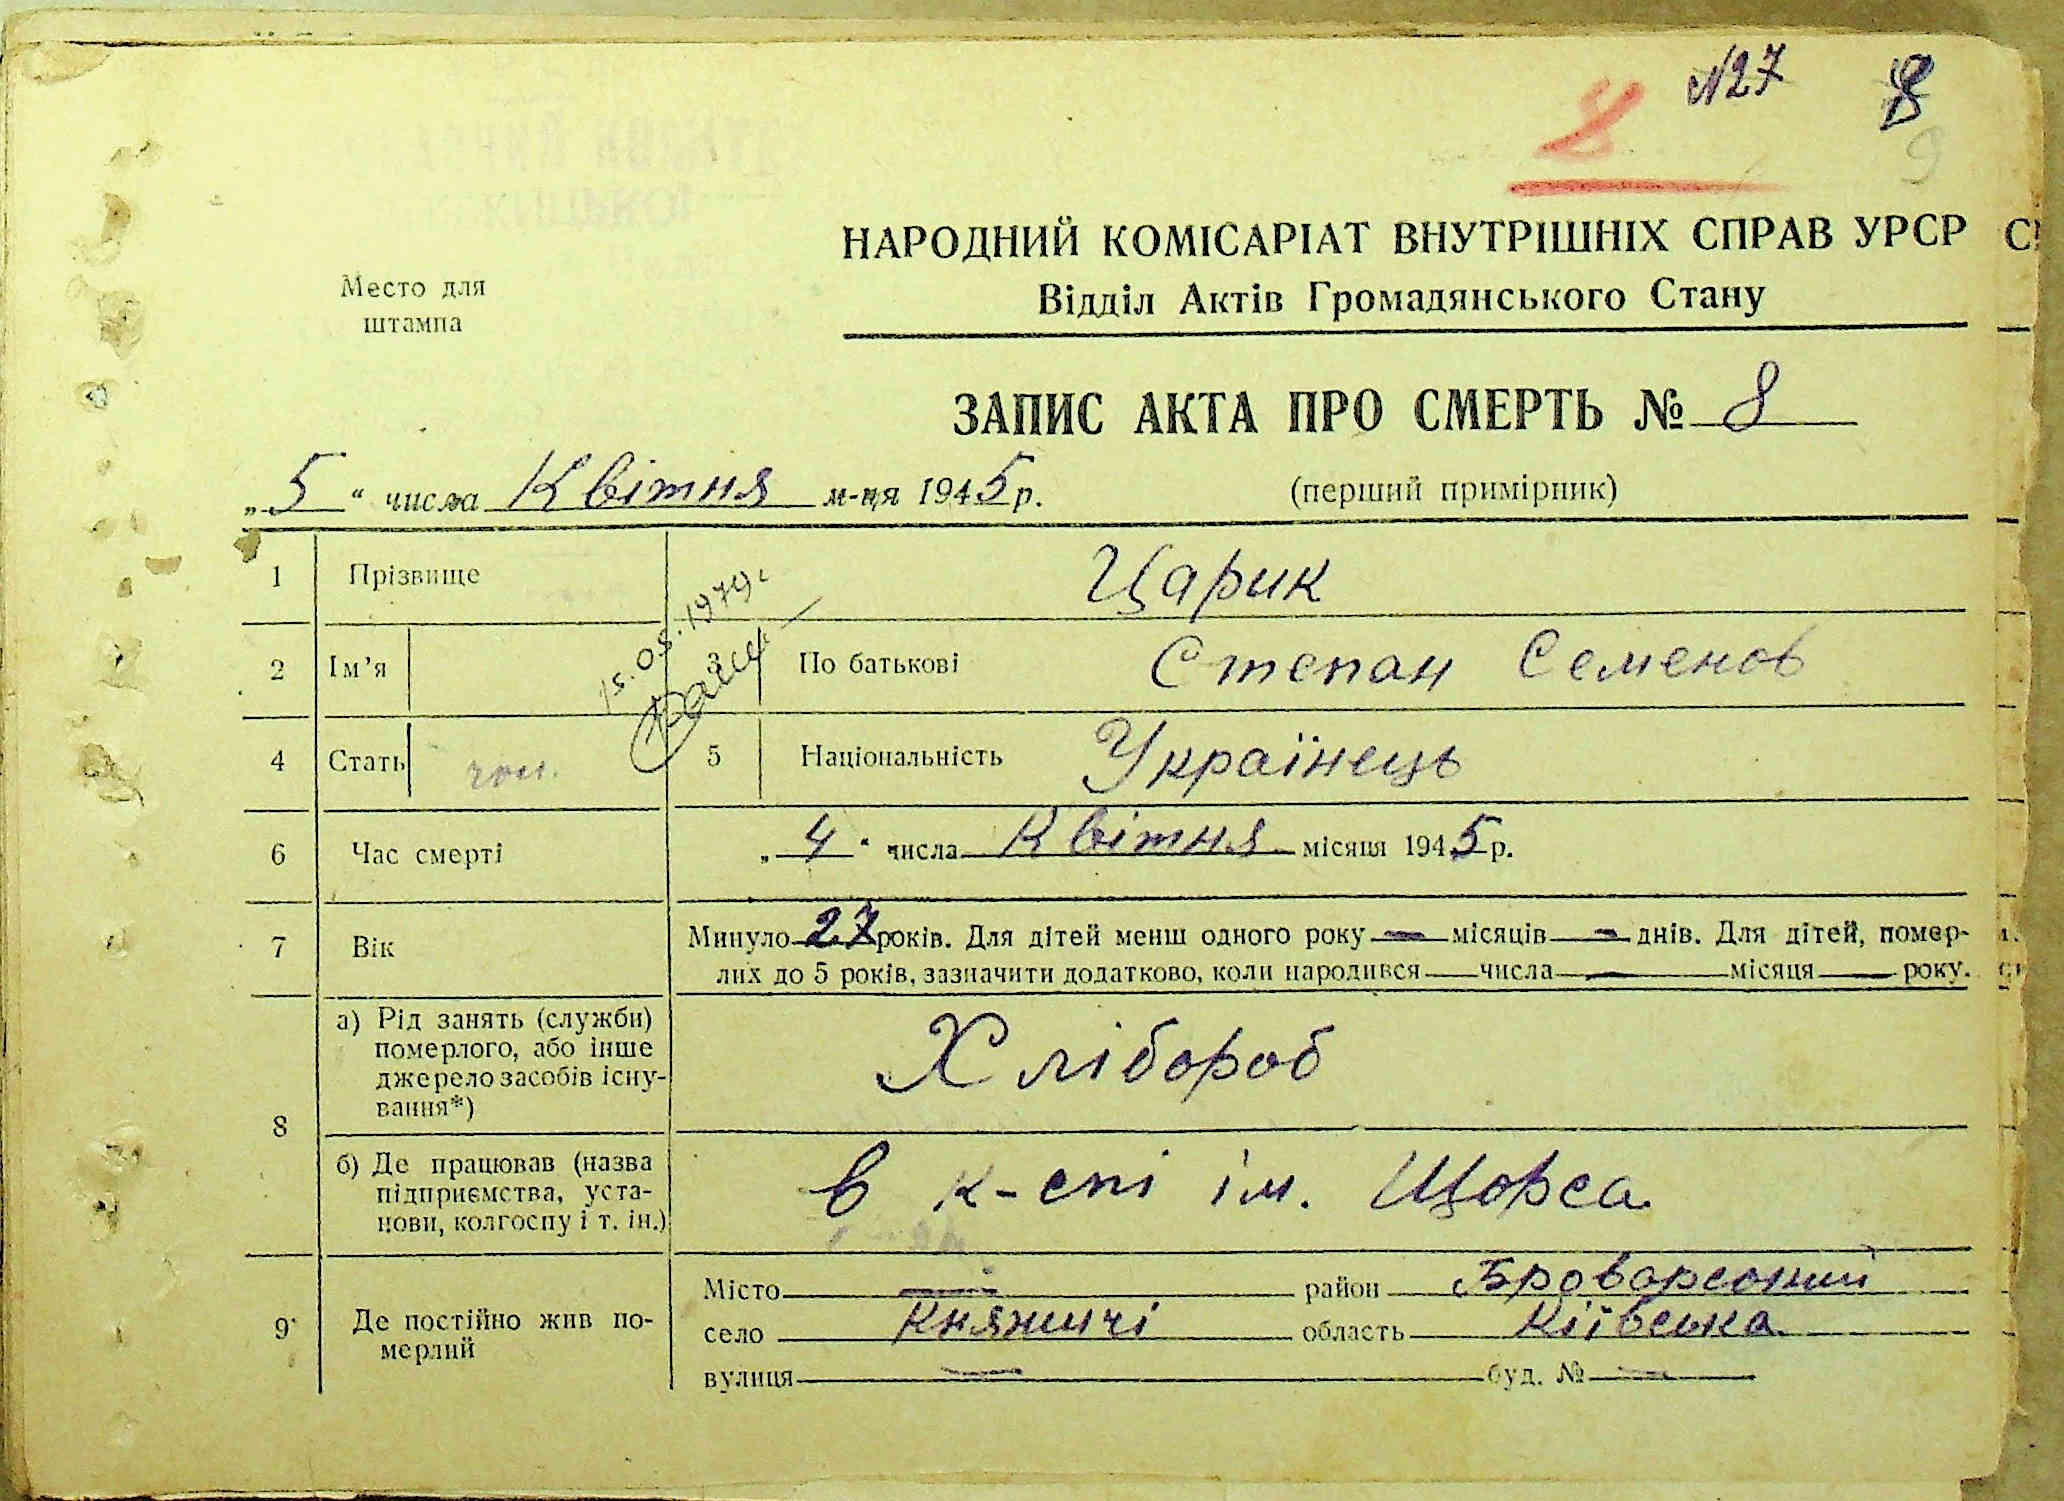 №27 8
9
2
НАРОДНИЙ КОМІСАРІАТ ВНУТРІШНІХ СПРАВ УРСР
Відділ Актів Громадянського Стану
Место для
штампа
ЗАПИС АКТА ПРО СМЕРТЬ № 8
„5“ числа Квітня м-ця 1945 р. (перший примірник)
1 Прізвище Царик
15.05.1979г
2 Ім’я 3 По батькові Степан Семенов
4 Стать чол. 5 Національність Українець
6 Час смерті „4“ числа Квітня місяця 1945 р.
7 Вік Минуло 27 років. Для дітей менш одного року — місяців — днів. Для дітей, помер-
лих до 5 років, зазначити додатково, коли народився — числа — місяця — року.
8 а) Рід занять (служби)
померлого, або інше
джерело засобів існу-
вання*)
Хлібороб
б) Де працював (назва
підприємства, уста-
нови, колгоспу і т. ін.)
в к-спі ім. Щорса
9 Де постійно жив по-
мерлий
Місто — район Броварський
село Княжичі область Київська
вулиця — буд. № —